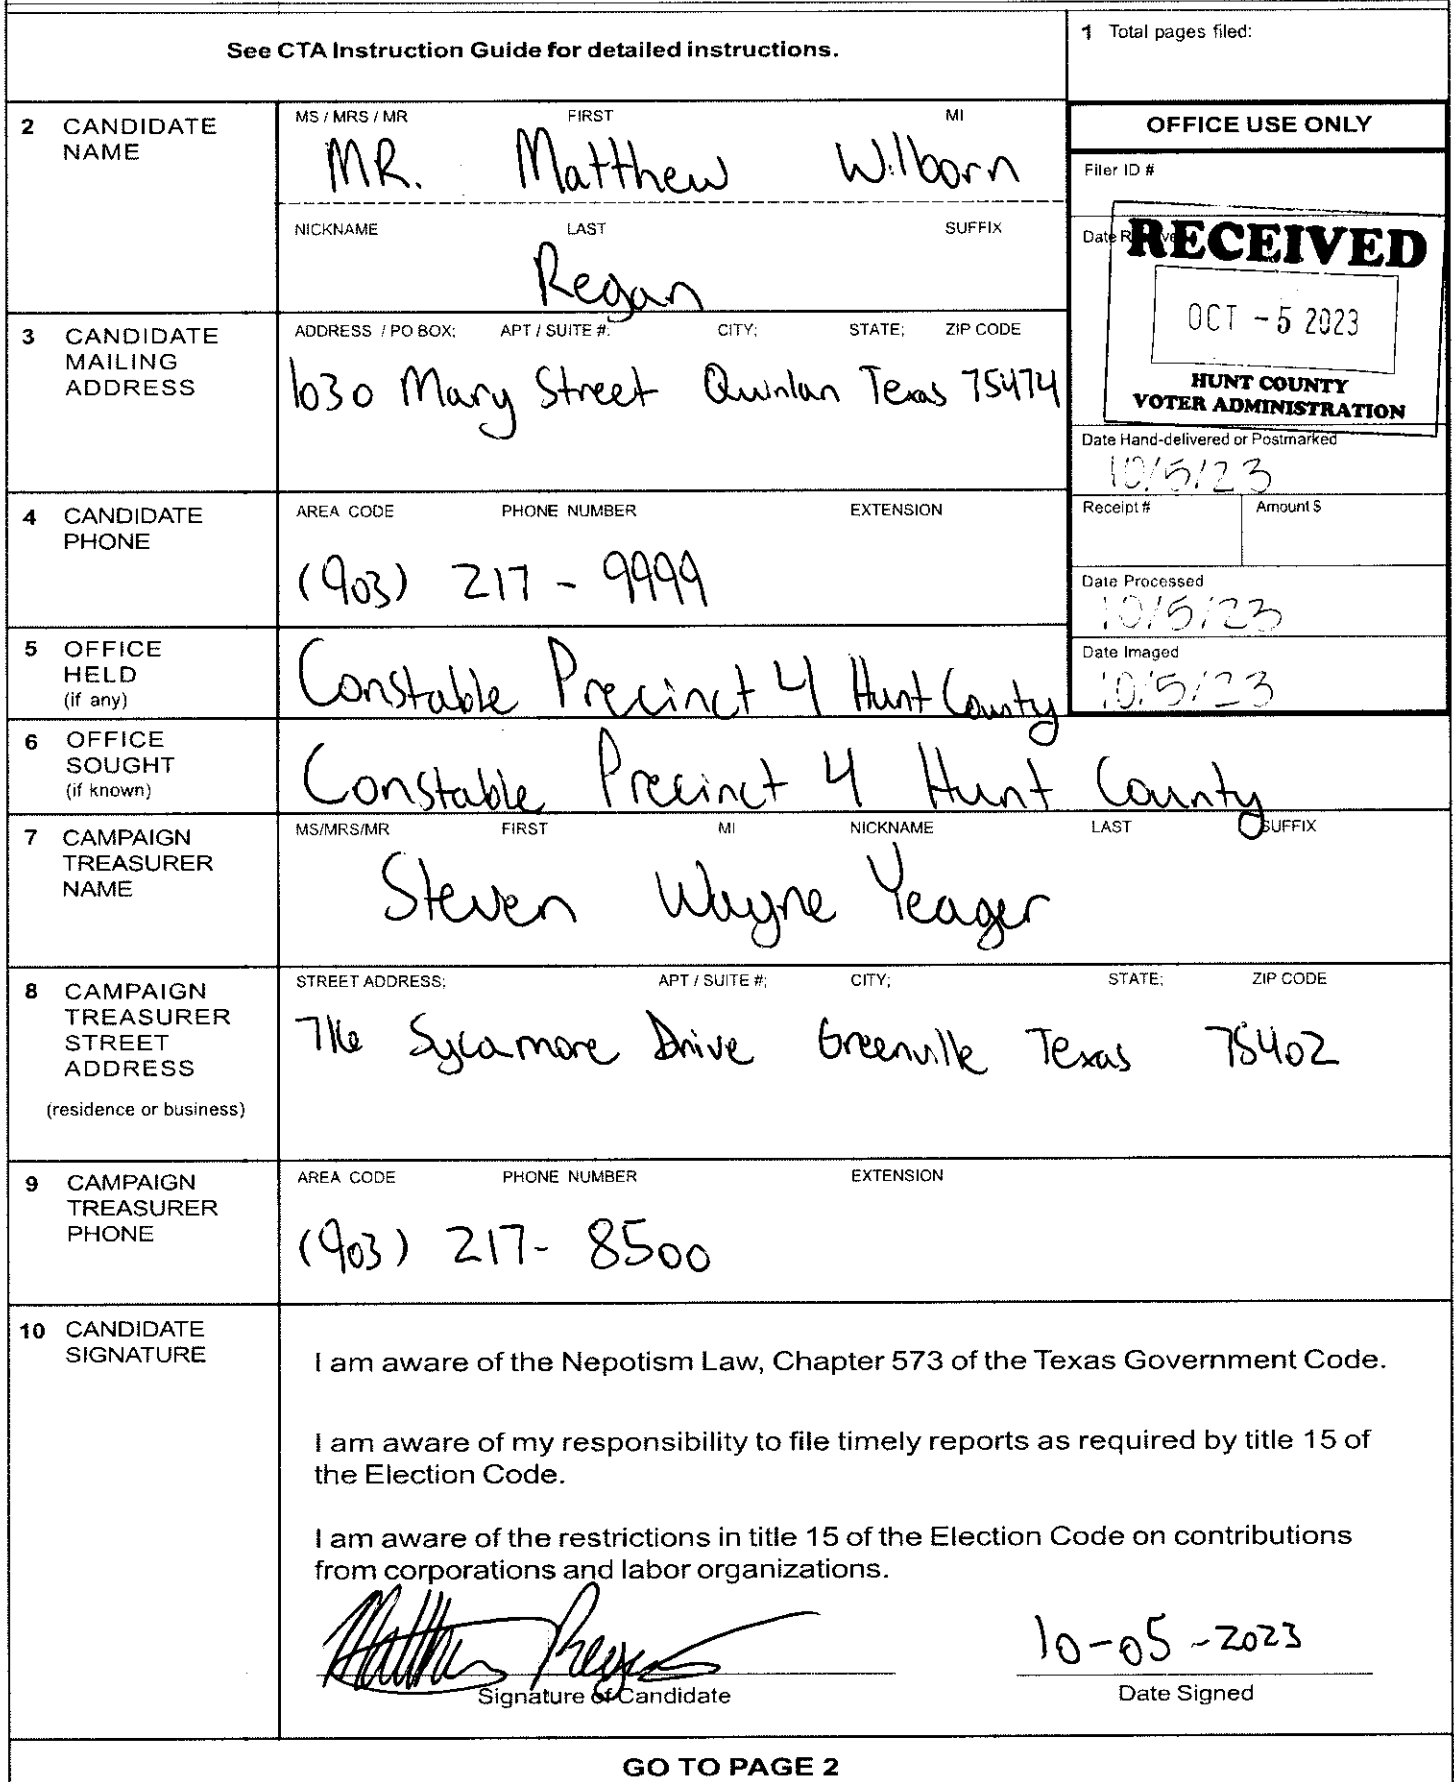 See CTA Instruction Guide for detailed instructions.
1 Total pages filed:
2 CANDIDATE NAME
MS / MRS / MR FIRST MI
MR. Matthew Wilborn
NICKNAME LAST SUFFIX
Regan
OFFICE USE ONLY
Filer ID #
Date Receive
RECEIVED
OCT - 5 2023
HUNT COUNTY
VOTER ADMINISTRATION
Date Hand-delivered or Postmarked
10/5/23
Receipt # Amount $
Date Processed
10/5/23
Date Imaged
10/5/23
3 CANDIDATE MAILING ADDRESS
ADDRESS / PO BOX; APT / SUITE #; CITY; STATE; ZIP CODE
1030 Mary Street Quinlan Texas 75474
4 CANDIDATE PHONE
AREA CODE PHONE NUMBER EXTENSION
(903) 217 - 9999
5 OFFICE HELD (if any)
Constable Precinct 4 Hunt County
6 OFFICE SOUGHT (if known)
Constable Precinct 4 Hunt County
7 CAMPAIGN TREASURER NAME
MS/MRS/MR FIRST MI NICKNAME LAST SUFFIX
Steven Wayne Yeager
8 CAMPAIGN TREASURER STREET ADDRESS
(residence or business)
STREET ADDRESS; APT / SUITE #; CITY; STATE; ZIP CODE
716 Sycamore Drive Greenville Texas 75402
9 CAMPAIGN TREASURER PHONE
AREA CODE PHONE NUMBER EXTENSION
(903) 217- 8500
10 CANDIDATE SIGNATURE
I am aware of the Nepotism Law, Chapter 573 of the Texas Government Code.
I am aware of my responsibility to file timely reports as required by title 15 of
the Election Code.
I am aware of the restrictions in title 15 of the Election Code on contributions
from corporations and labor organizations.
Matthew Regan 10-05-2023
Signature of Candidate Date Signed
GO TO PAGE 2